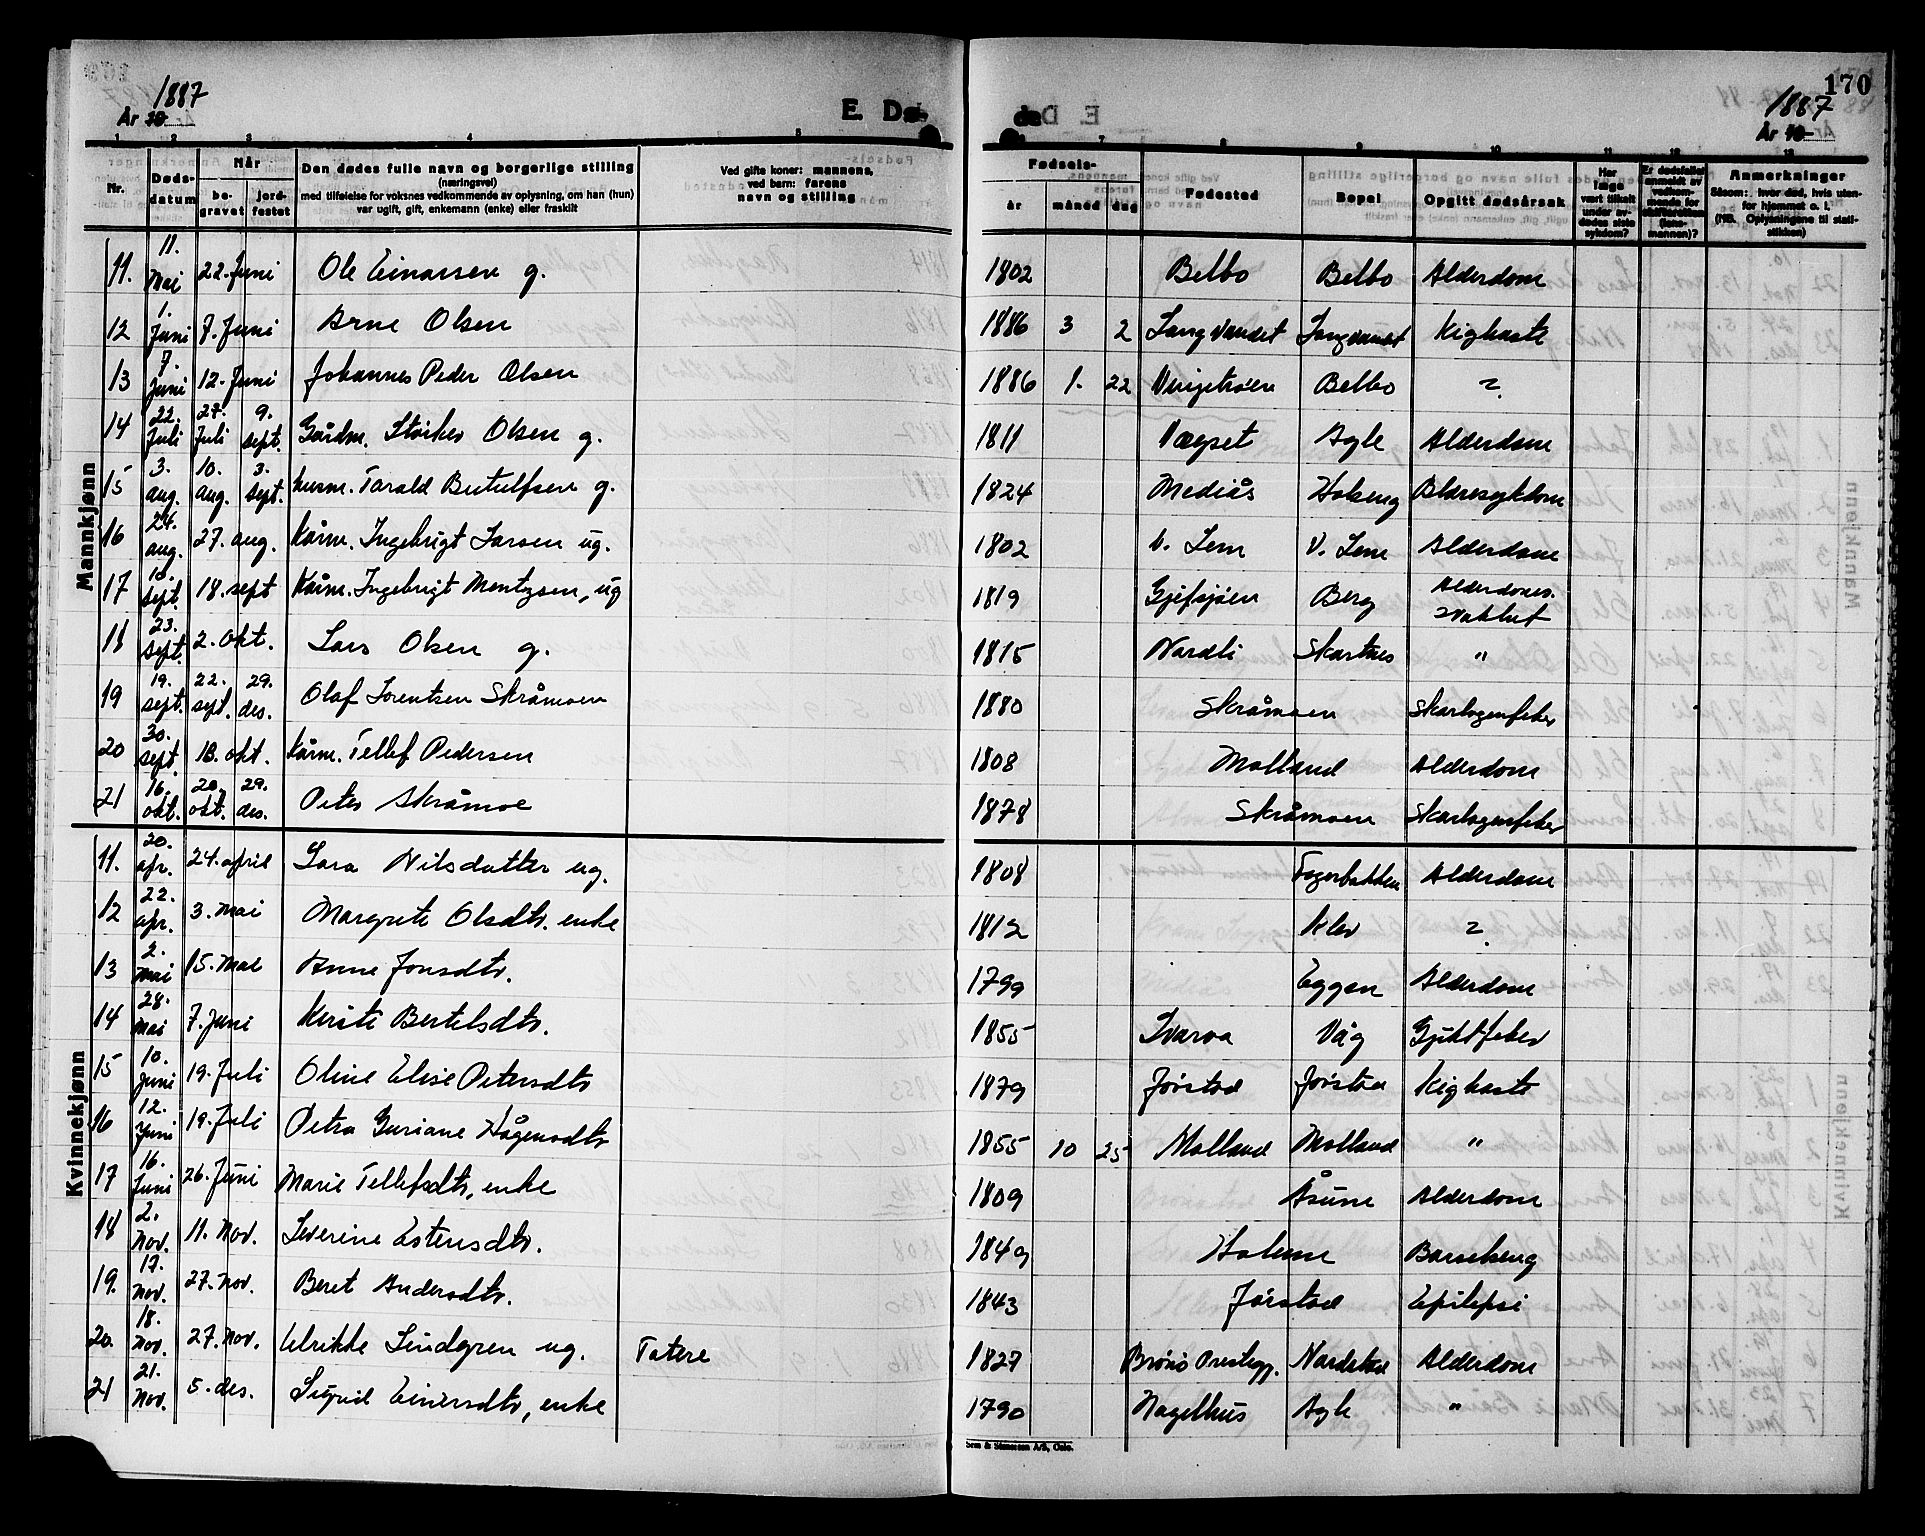 1887
År 18
E. Dø-
170
1887
År 18
1 2 3 4 5
7 8 9 10 11 12 13
Nr. | Døds-datum | Når be-gravet | jord-festet | Den dødes fulle navn og borgerlige stilling (næringsvei) med tilføielse for voksnes vedkommende av oplysning, om han (hun) var ugift, gift, enkemann (enke) eller fraskilt | Ved gifte koner: mannens, ved barn: farens navn og stilling | Fødsels- år | måned | dag | Fødested | Bopel | Opgitt dødsårsak | Har læge vært tilkalt under av-dødes siste sykdom? | Er dødsfallet anmeldt av vedkom-mende for skifteretten (lens-mannen)? | Anmerkninger Såsom: hvor død, hvis uten-for hjemmet o. l. (NB. Oplysningene til stati-stikken)
Mannkjønn
11. | 11. Mai | 22. Juni | Ole Einarsen g. | 1802 | Belbo | Belbo | Alderdom
12 | 1. Juni | 7. Juni | Arne Olsen | 1886 | 3 | 2 | Langvandet | Langvandet | Kighoste
13 | 7. Juni | 12. Juni | Johannes Peder Olsen | 1886 | 1. | 22 | Vingetrøen | Belbo | ?
14 | 22. Juli | 27. Juli | 9. sept. | Gårdm. Størker Olsen g. | 1811 | Vægset | Agle | Alderdom
15 | 3. aug. | 10. aug. | 3. sept. | husm. Tarald Bertulfsen g. | 1824 | Mediås | Holseng | Blæresykdom
16 | 24. aug. | 27. aug. | Kårm. Ingebrigt Larsen ug. | 1802 | V. Lem | V. Lem | Alderdom
17 | 10. sept. | 18. sept | Kårm. Ingebrigt Mentzsen, ug | 1819 | Gjefsjøen | Berg | Alderdoms-svakhet
18 | 23. sept. | 2. Okt. | Lars Olsen g. | 1815 | Nordli | Skartnes | "
19 | 19. sept. | 22. sept. | 29. des. | Olaf Lorentsen Skråmoen | 1880 | Skråmoen | Skarlagenfeber
20 | 30. sept. | 18. okt. | Kårm. Tellef Pedersen | 1808 | Molland | Alderdom
21 | 16. okt. | 20. okt. | 29. des. | Peter Skråmoe | 1878 | Skråmoen | Skarlagenfeber
Kvinnekjønn
11. | 20. apr. | 24. april | Sara Nilsdatter ug. | 1808 | Fagerbakken | Alderdom
12 | 22. apr. | 3. Mai | Margrete Olsdtr. enke | 1812 | Klev | ?
13 | 2. Mai | 15. Mai | Anne Jonsdtr. | 1799 | Eggen | Alderdom
14 | 28. Mai | 7. Juni | Kersti Bertelsdtr. | 1855 | Ivarsa | Våg | Gjiktfeber
15 | 10. Juni | 19. Juli | Oline Elise Petersdtr | 1879 | Jørstad | Jørstad | Kighoste
16 | 12. Juni | 19. Juli | Petra Guriane Hågensdtr | 1855 | 10 | 25 | Molland | Molland | "
17 | 16. Juni | 26. Juni | Marie Tellefsdtr, enke | 1809 | Åsune | Alderdom
18 | 2. Nov. | 11. Nov. | Severine Estensdtr. | 1849 | Holmen | Barselseng
19. | 17. Nov. | 27. Nov. | Beret Andersdtr. | 1843 | Jørstad | Epilepsi
20. | 18. Nov. | 27. Nov. | Ulrikke Lindgren ug. | Tatere | 1827 | Brønø Prestegj. | Nordstad | Alderdom
21 | 21. Nov. | 5. des. | Sigrid Einersdtr, enke | 1790 | Nagelhus | Agle | "
Sem & Stenersen A/S, Oslo.